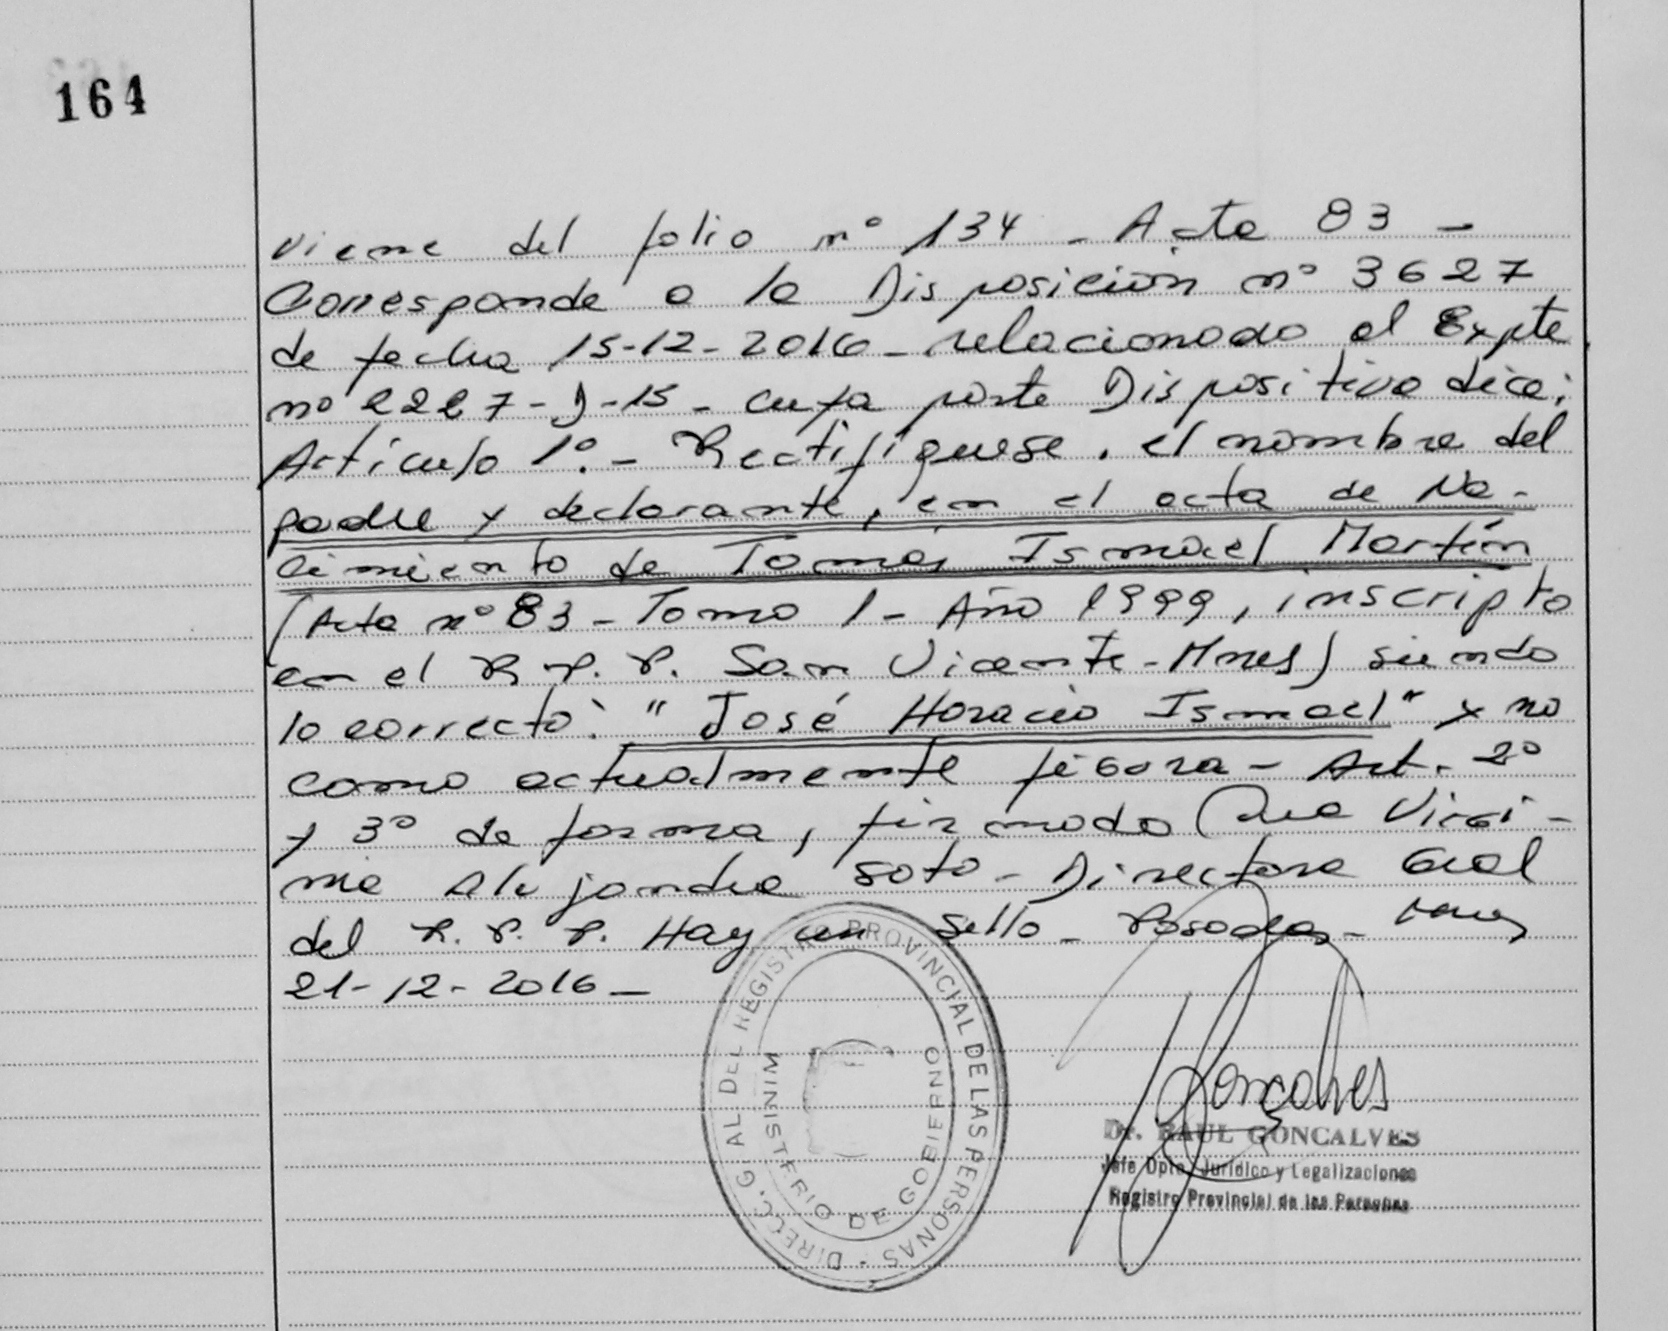 164
Viene del folio nº 134 - Acta 83 -
Corresponde a la Disposición nº 3627
de fecha 15-12-2016 - relacionado al Expte.
nº 2227-D-15 - cuya parte Dispositiva dice:
Artículo 1º. - Rectifíquese. el nombre del
padre y declarante, en el acta de Na-
cimiento de Tomás Ismael Martín
(Acta nº 83 - Tomo 1 - Año 1999, inscripto
en el R.P.P. San Vicente - Mnes) siendo
lo correcto: "José Horacio Ismael" y no
como actualmente figura - Art. 2º
y 3º de forma, firmado Dra Virgi-
nia Alejandra Soto - Directora Gral
del R.P.P. Hay un Sello - Posadas - Mnes
21-12-2016 -
DIRECC. G AL DEL REGISTRO PROVINCIAL DE LAS PERSONAS -
MINISTERIO DE GOBIERNO
Goncalves
Dr. RAUL GONCALVES
Jefe Dpto. Jurídico y Legalizaciones
Registro Provincial de las Personas